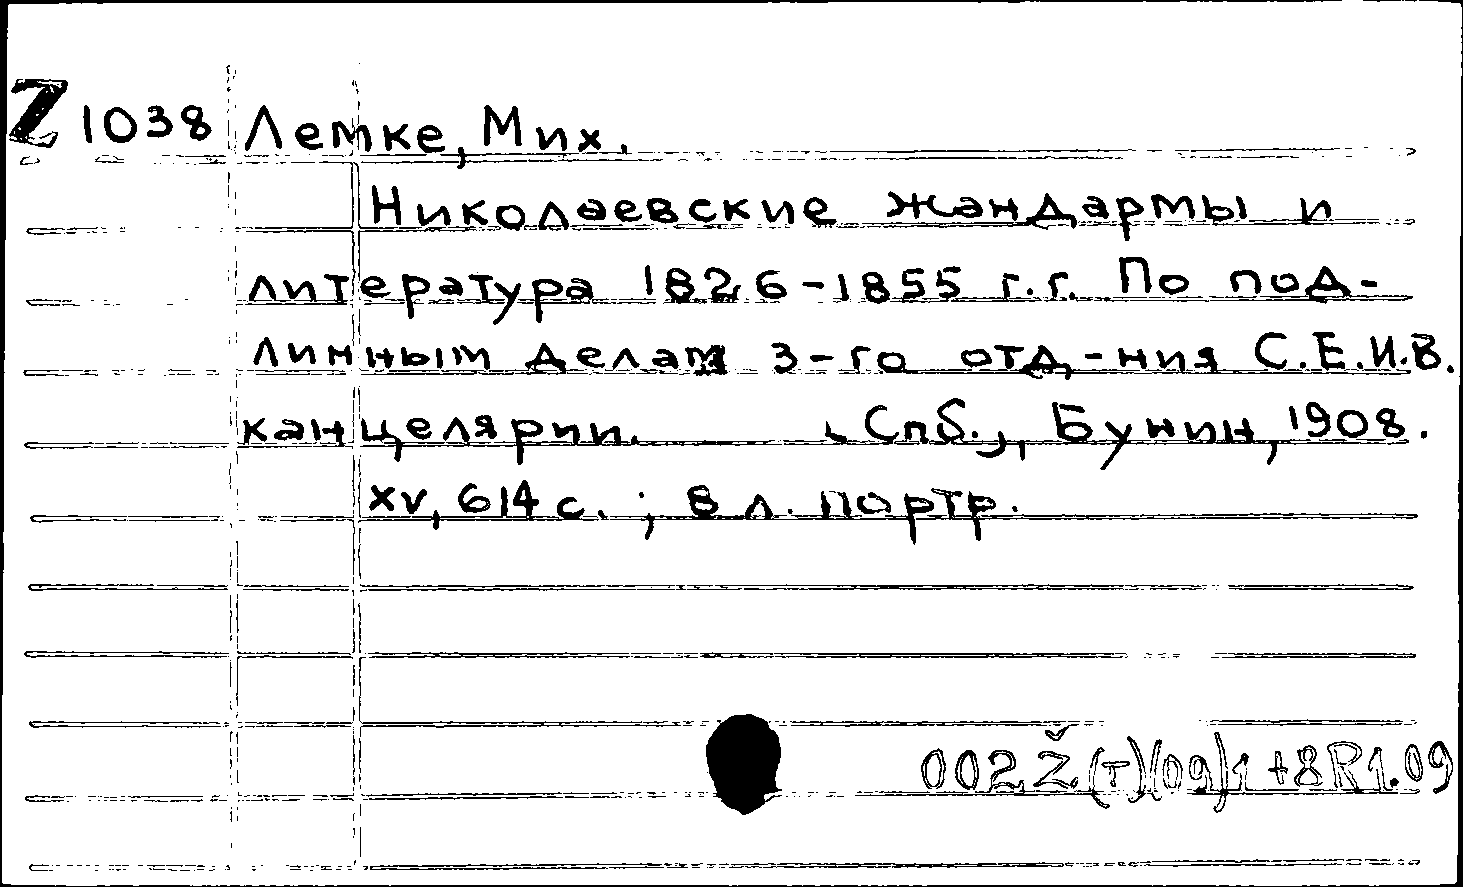 Z 1038 Лемке, Мих.
Николаевские жандармы и
литература 1826-1855 г.г. По под-
линным делам 3-го отд-ния С.Е.И.В.
канцелярии. Спб., Бунин, 1908.
XV, 614 с. ; 8 л. портр.
002Ž(т)(09)1+8R1.09